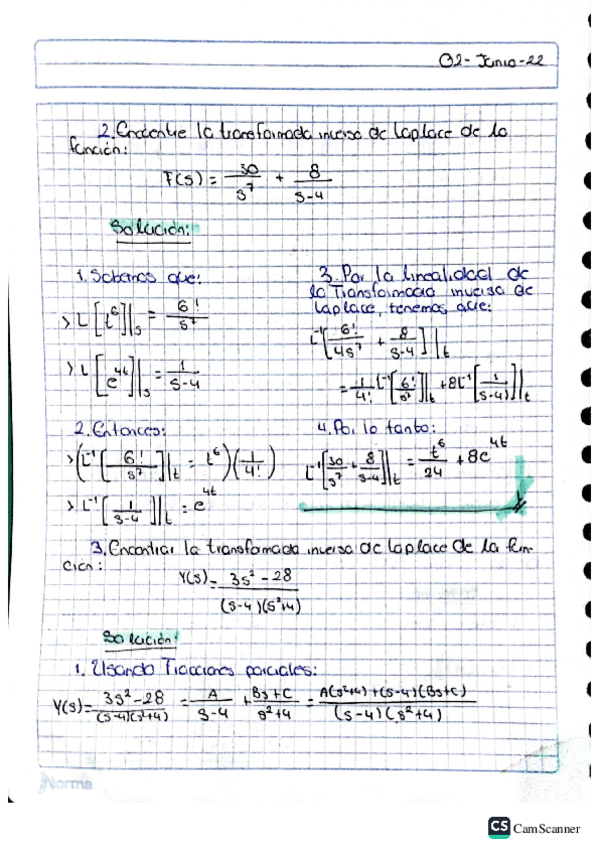 02-Junio-22
2. Encuentre la transformada inversa de Laplace de la
función:
F(s) = 30/s^7 + 8/(s-4)
Solución:
1. Sabemos que:
> L[t^6]|_s = 6!/s^7
> L[e^{4t}]|_s = 1/(s-4)
2. Entonces:
> (L^{-1}[6!/s^7]|_t = t^6)(1/4!)
> L^{-1}[1/(s-4)]|_t = e^{4t}
3. Por la linealidad de
la Transformada inversa de
Laplace, tenemos que:
L^{-1}[6!/4s^7 + 8/(s-4)]|_t
= 1/4! L^{-1}[6!/s^7]|_t + 8L^{-1}[1/(s-4)]|_t
4. Por lo tanto:
L^{-1}[30/s^7 + 8/(s-4)]|_t = t^6/24 + 8e^{4t}
3. Encontrar la transformada inversa de Laplace de la fun-
ción:
Y(s) = (3s^2-28)/((s-4)(s^2+4))
Solución:
1. Usando Fracciones parciales:
Y(s) = (3s^2-28)/((s-4)(s^2+4)) = A/(s-4) + (Bs+C)/(s^2+4) = (A(s^2+4)+(s-4)(Bs+C))/((s-4)(s^2+4))
Norma
CS CamScanner